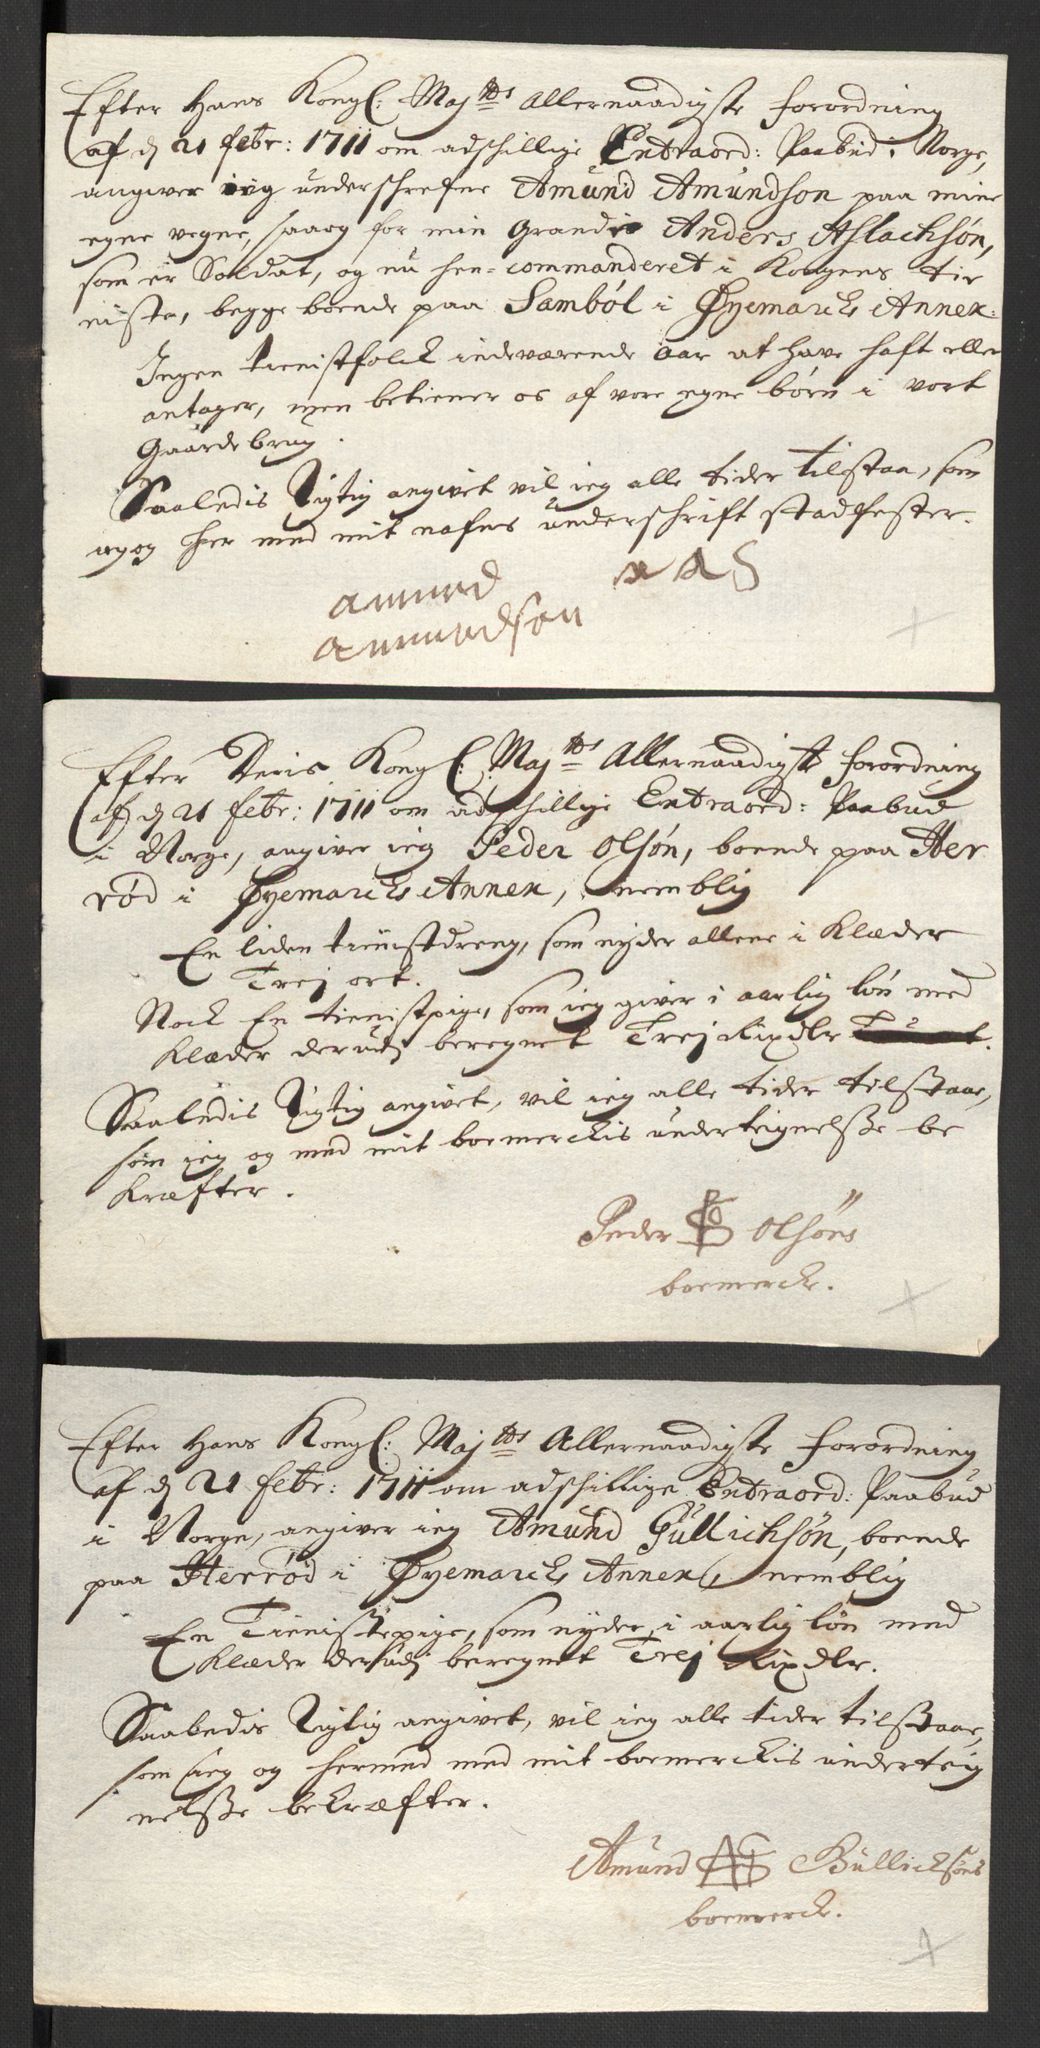 Efter Hans Kongl: Maj^tts Allernaadigste forordning
af d 21 febr: 1711 om adschillige Extraord: Paabud i Norge,
angiver ieg underschrefne Amund Amundson paa mine
egne vegne, saaog for min Grande Anders Aslachsøn,
som er Soldat, og nu hen-commanderet i Kongens tie
niste, begge boende paa Sambøl i Øyemarchs Annex:
Ingen tienistfolck indeværende aar at have haft eller
antager, men betiener os af vore egne børn i vort
Gaardebrug.
Saaledis Rigtig angivet vil ieg alle tider tilstaa, som
ieg og her med mit nafns underschrift stadfester.
amund A A S
amundson
Efter Deris Kongl: Maj^tts Allernaadigste forordning
af d 21 febr: 1711 om adschillige Extraord: Paabud
i Norge, angiver ieg Peder Olsøn, boende paa Her
rød i Øyemarchs Annex, nemblig
En liden tienistdreng, som nyder allene i Klæder
Trej ort.
Nock En tienistpige, som ieg giver i aarlig løn med
Klæder derudj beregnet Trej Rixdlr
Saaledis Rigtig angivet, vil ieg alle tider tilstaae,
som ieg og med mit boemerckis underteignelsse be
kræfter.
Peder Olsøns
boemerck.
Efter Hans Kongl: Maj^tts Allernaadigste forordning
af d 21 febr: 1711 om adschillige Extraord: Paabud
i Norge, angiver ieg Amund Gullichsøn, boende
paa Herrød i Øyemarchs Annex, nemblig
En Tienistepige, som nyder i aarlig løn med
Klæder derudj beregnet Trej Rixdlr.
Saaledis Rigtig angivet, vil ieg alle tider tilstaae,
som ieg og hermed med mit boemerckis underteig
nelsse bekræfter.
Amund Gullichsøns
boemerck.